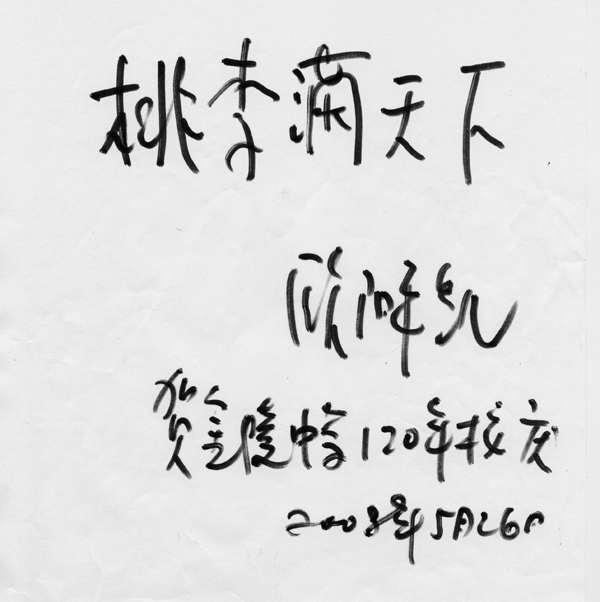 桃李满天下
贺金陵中学120年校庆
2008年5月26日